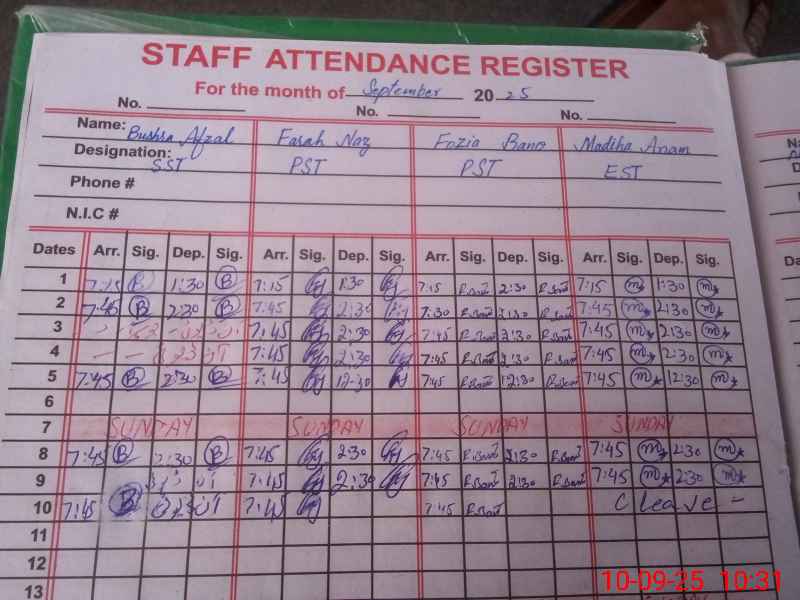 STAFF ATTENDANCE REGISTER
For the month of September 2025
No. No. No.
Name: Bushra Afzal Farah Naz Fozia Bano Madiha Anam
Designation: SST PST PST EST
Phone #
N.I.C #
Dates Arr. Sig. Dep. Sig. Arr. Sig. Dep. Sig. Arr. Sig. Dep. Sig. Arr. Sig. Dep. Sig.
1 7:15 B 1:30 B 7:15 1:30 7:15 F.Bano 2:30 F.Bano 7:15 m 1:30 m
2 7:45 B 2:30 B 7:45 2:30 7:30 F.Bano 2:30 F.Bano 7:45 m 2:30 m
3 7:45 2:30 7:45 F.Bano 2:30 F.Bano 7:45 m 2:30 m
4 7:45 2:30 7:45 F.Bano 2:30 F.Bano 7:45 m 2:30 m
5 7:45 B 2:30 B 7:45 12:30 7:45 F.Bano 12:30 F.Bano 7:45 m 12:30 m
6
7 SUNDAY SUNDAY SUNDAY SUNDAY
8 7:45 B 2:30 B 7:45 2:30 7:45 F.Bano 2:30 F.Bano 7:45 m 2:30 m
9 7:45 2:30 7:45 F.Bano 2:30 F.Bano 7:45 m 2:30 m
10 7:45 B 7:45 7:45 F.Bano C Leave -
11
12
13
10-09-25 10:31